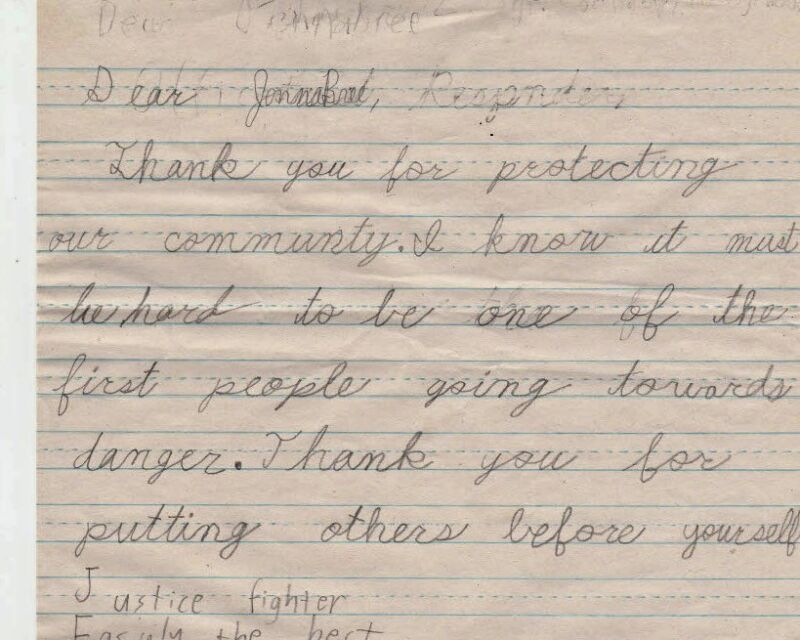 Dear
Dear
Thank you for protecting
our communty. I know it must
be hard to be one of the
first people going towards
danger. Thank you for
putting others before yourself
Justice fighter
Easyly the best